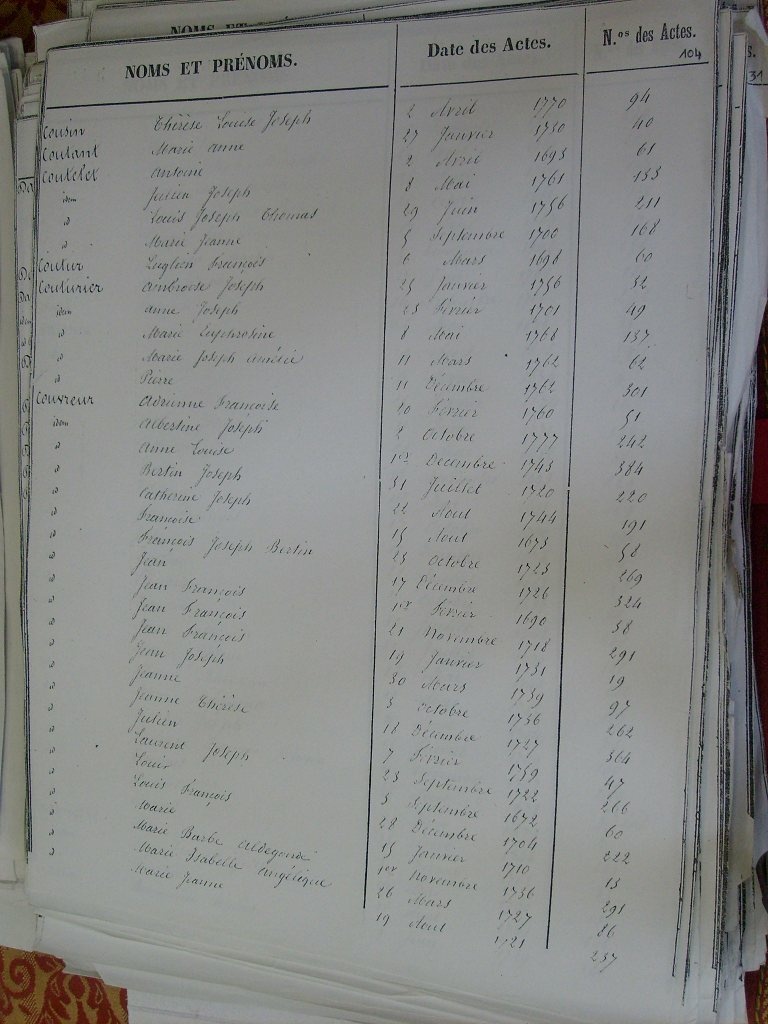 NOMS ET PRÉNOMS. Date des Actes. N.os des Actes.
104
31
Cousin Thérèse Louise Joseph 2 Avril 1770 94
Coutant Marie Anne 27 Janvier 1730 40
Coutelet Antoine 2 Avril 1693 61
idem Julien Joseph 8 Mai 1761 133
d Louis Joseph Thomas 29 Juin 1756 211
d Marie Jeanne 5 Septembre 1700 168
Coutur Luglien François 6 Mars 1698 60
Couturier Ambroise Joseph 25 Janvier 1756 32
idem Anne Joseph 23 Février 1701 49
d Marie Euphrosine 8 Mai 1768 137
d Marie Joseph Aimée 11 Mars 1762 62
d Pierre 11 Décembre 1762 301
Couvreur Adrienne Françoise 20 Février 1760 51
idem Albertine Joseph 2 Octobre 1777 242
d Anne Louise 1er Décembre 1743 384
d Bertin Joseph 31 Juillet 1720 220
d Catherine Joseph 22 Aout 1744 191
d Françoise 15 Aout 1673 58
d François Joseph Bertin 23 Octobre 1723 269
d Jean 17 Décembre 1726 324
d Jean François 1er Février 1690 38
d Jean François 21 Novembre 1718 291
d Jean François 19 Janvier 1731 19
d Jean Joseph 30 Mars 1739 97
d Jeanne 3 Octobre 1736 262
d Jeanne Thérèse 18 Décembre 1727 364
d Julien 7 Février 1759 47
d Laurent Joseph 23 Septembre 1722 266
d Louis 3 Septembre 1672 60
d Louis François 28 Décembre 1704 222
d Marie 15 Janvier 1710 13
d Marie Barbe Aldegonde 1er Novembre 1736 291
d Marie Isabelle Angélique 26 Mars 1727 86
d Marie Jeanne 19 Aout 1721 237